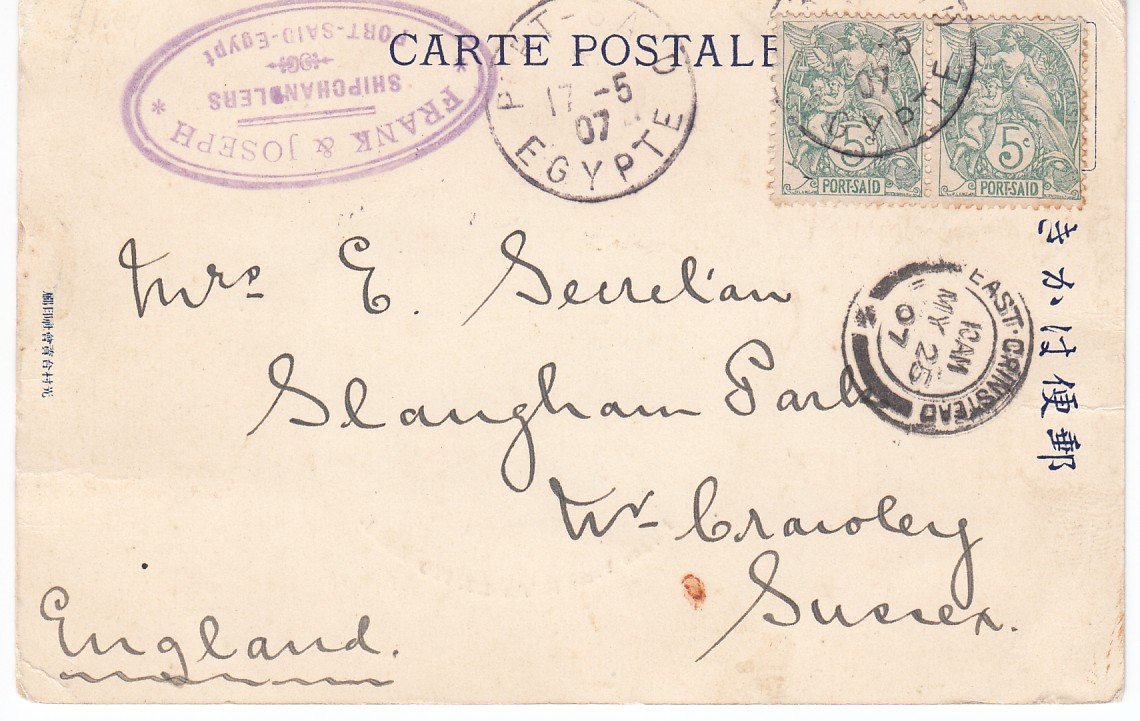 CARTE POSTALE
* FRANK & JOSEPH *
SHIPCHANDLERS
PORT-SAID-Egypt
17-5
07
EGYPTE
-5
07
5c
PORT-SAID
5c
PORT-SAID
郵便はかき
EAST·GRINSTEAD
10AM
MY 25
07
Mrs E. Secretan
Slaugham Park
Nr Crawley
Sussex.
England.